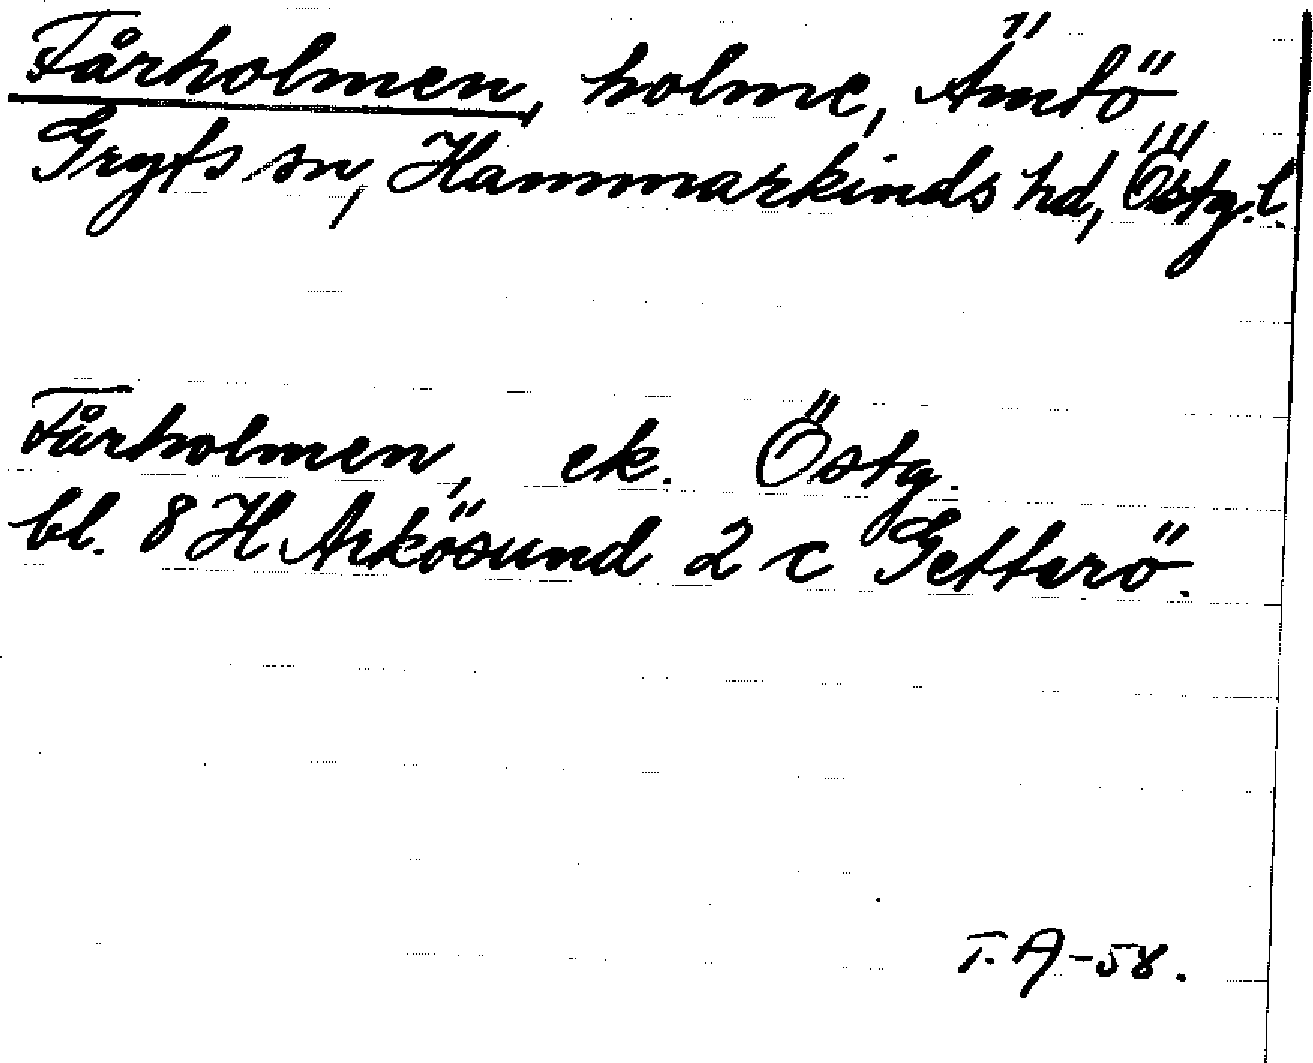 Fårholmen, holme, Ämtö
Gryts sn, Hammarkinds hd, Östg. l.
Fårholmen, ek. Östg.
bl. 8 H Arkösund 2 c Getterö.
T. A-58.